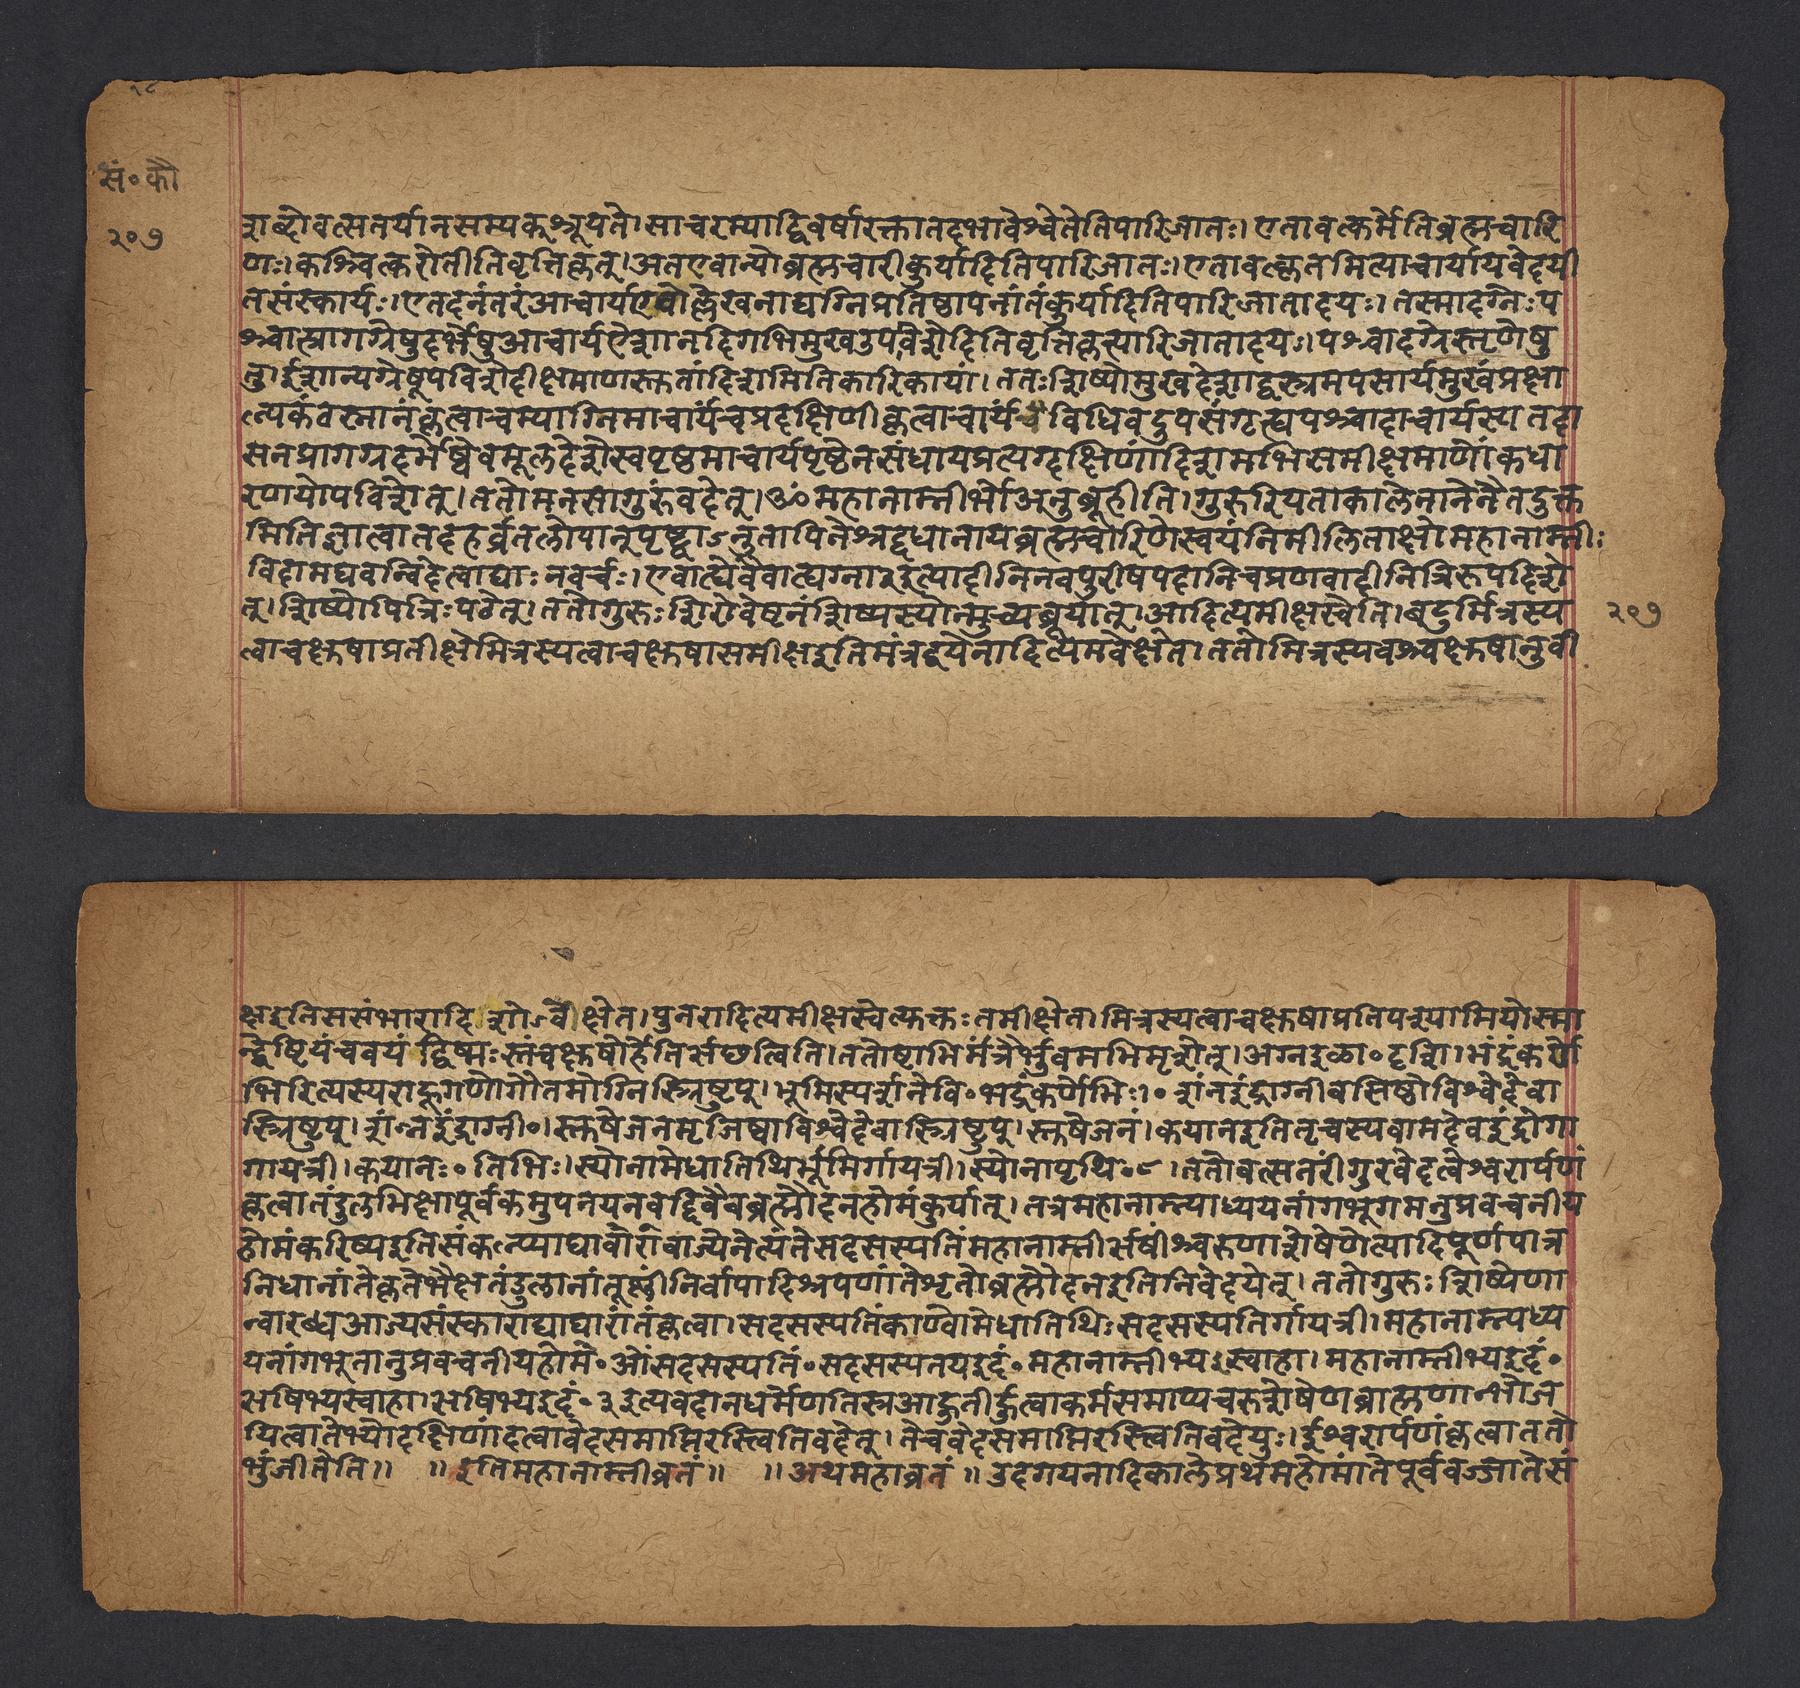 १८
सं॰कौ
२०७
शब्दोवत्सतर्यानसम्यकश्रूयते।साचरम्याद्विवर्षारक्तातदभावेश्वेतेतिपारिजातः।एतावत्कर्मेतिब्रह्मचारि
णः।कश्चित्करोतीतिवृत्तिकृत्।अतएवान्योब्रह्मचारीकुर्यादितिपारिजातः।एतावत्कृतमित्याचार्यायवेदयी
तसंस्कार्यः।एतदनंतरंआचार्यएवोल्लेखनाद्यग्निप्रतिष्ठापनांतंकुर्यादितिपारिजातादयः।तस्मादग्नेःप
श्चात्प्रागग्रेषुदर्भेषुआचार्यऐशानदिगभिमुखउपविशेदितिवृत्तिकृत्पारिजातादयः।पश्चादग्नेस्तृणेषु
तु।ईशान्यग्रेषूपविशेदीक्षमाणस्क्ततांदिशमितिकारिकायां।ततःशिष्योमुखदेशाद्वस्त्रमपसार्यमुखंप्रक्षा
ल्पेकंवस्नानंकृत्वाचम्याग्निमाचार्यंचप्रदक्षिणीकृत्वाचार्यंचविधिवदुपसंगृह्यपश्चादाचार्यस्य तदा
सनप्रागग्रदर्भेष्वेवमूलदेशेस्वपृष्ठमाचार्यपृष्ठेनसंधायप्रत्यग्दक्षिणांदिशमभिसमीक्षमाणोंकधा
रणायोपविशेत्।ततोमनसागुरुंवदेत्।ॐमहानाम्नीर्भोअनुब्रूहीति।गुरुरियताकालेनानेनैतदुक्त
मितिज्ञात्वातदहर्व्रतलोपानुपृष्ट्वाऽनुतापिनेश्रद्दधानायब्रह्मचारिणेस्वयंनिमीलिताक्षोमहानाम्नीः
विदामघवन्विदेत्वाद्याःनवर्चः।एवाह्येवैवाह्यग्ना३इत्यादीनिनवपुरीषपदानिचप्रणवादीनित्रिरूपदिशे
त्।शिष्योपित्रिःपठेत्।ततोगुरुःशिरोवेष्टनंशिष्यस्योन्मुच्यब्रूयात्।आदित्यमीक्षस्वेति।बटुर्मित्रस्य
२०७
त्वाचक्षुषाप्रतीक्षेमित्रस्यत्वाचक्षुषासमीक्षइतिमंत्रद्वयेनादित्यमवेक्षेत।ततोमित्रस्यवश्चक्षुषानुवी
क्षइतिससंभारादिशोऽवेक्षेत।पुनरादित्यमीक्षस्वेत्युक्तःतमीक्षेत।मित्रस्यत्वाचक्षुषाप्रतिपश्यामियोस्मा
न्द्वेष्टियंचवयंद्विष्मःस्तंचक्षुषोर्हेतिर्ऋछत्विति।ततोष्टाभिर्मंत्रैर्भुवमभिमृशेत्।अग्नइळा॰दृशि।भद्रंकर्णे
भिरित्यस्यराहूगणोगौतमोग्निस्त्रिष्टुप्।भूमिस्पर्शनेवि॰भद्रंकर्णेभिः।॰शंनइंद्राग्नीवसिष्ठोविश्वेदेवा
स्त्रिष्टुप्।शंनइंद्राग्नी॰।स्तुषेजनमृजिष्वाविश्वेदेवास्त्रिष्टुप्।स्तुषेजनं।कयानइतितृचस्यवामदेवइंद्रोगा
गायत्री।कयानः॰तिभिः।स्योनामेधातिथिर्भूमिर्गायत्री।स्योनापृथि॰८।ततोवत्सतरींगुरवेदत्वेश्वरार्पणं
कृत्वातंडुलभिक्षापूर्वकमुपनयनवद्दिवैवब्रह्मौदनहोमंकुर्यात्।तत्रमहानाम्न्याध्ययनांगभूगमनुप्रवचनीय
होमंकरिष्यइतिसंकल्प्याघावौरावाज्येनेत्यंतेसदसस्पतिंमहानाम्नीर्ऋषींश्चरुणाशेषेणेत्यादिपूर्णपात्र
निधानांतेकृतेभैक्षतंडुलानांतूष्णींनिर्वापादिश्रपणांतेशृतोब्रह्मौदनइतिनिवेदयेत्।ततोगुरुःशिष्येणा
न्वारब्धआज्यसंस्काराद्याघारांतंकृत्वा।सदसस्पतिंकाण्वोमेधातिथिःसदसस्पतिर्गायत्री।महानाम्न्यध्य
यनांगभूतानुप्रवचनीयहोमे॰ओंसदसस्पतिं॰सदसस्पतयइदं॰महानाम्नीभ्यःस्वाहा।महानाम्नीभ्यइदं॰
ऋषिभ्यस्वाहा।ऋषिभ्यइदं॰३इत्यवदानधर्मेणतिस्रआहुतीर्हुत्वाकर्मसमाप्यचरुशेषेणब्राह्मणान्भोज
यित्वातेभ्योदक्षिणांदत्वावेदसमाप्तिरस्त्वितिवदेत्।तेचवेदसमाप्तिरस्त्वितिवदेयुः।ईश्वरार्पणंकृत्वाततो
भुंजीतेति॥ ॥इतिमहानाम्नीव्रतं॥ ॥अथमहाव्रतं॥उदगयनादिकालेप्रथमहोमांतेपूर्ववज्जातेसं